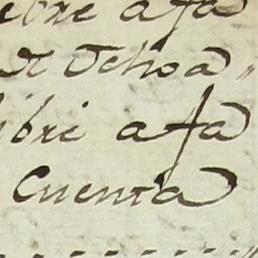 ebre afa
de Ochoa"
libre afa
Cuenta